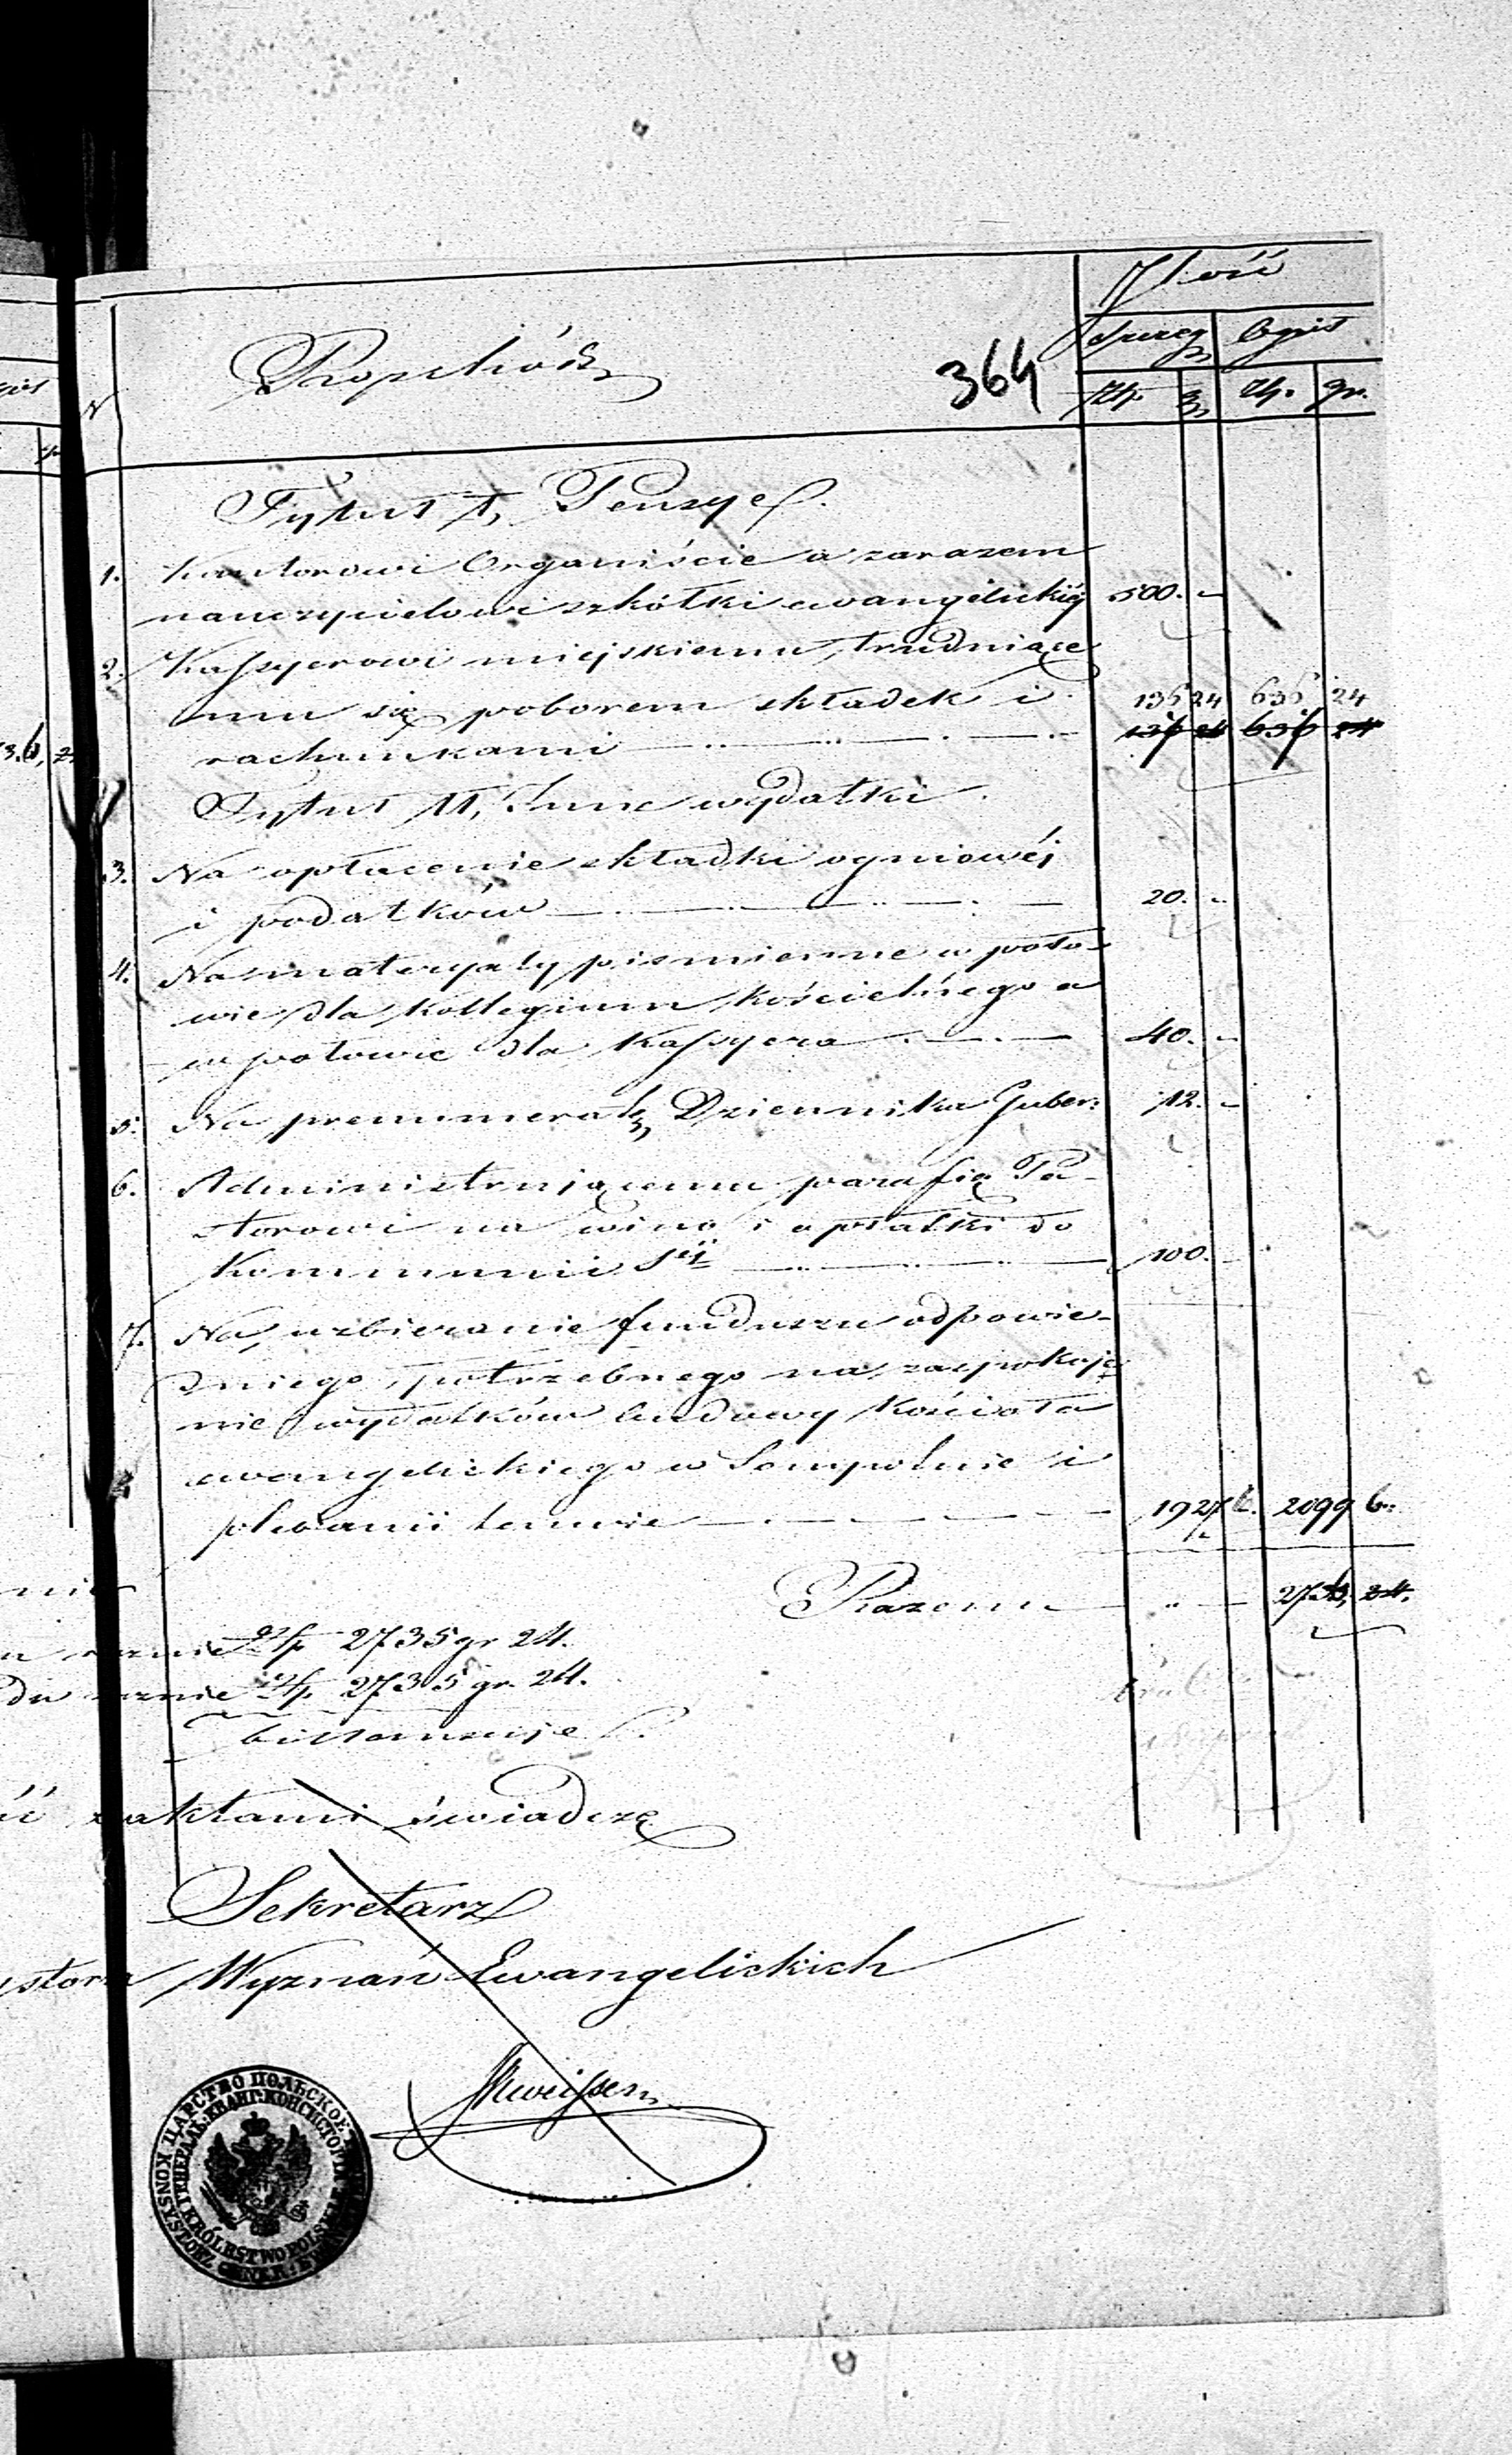 Ilość
Rozchód
364
szczeg
Ogół
N
Złp.
gr
Złp.
gr.
Tytuł I, Pensye.
1. Kantorowi Organiście a zarazem
nauczycielowi szkółki ewangelickiéj 500. -
2. Kassyerowi miejskiemu, trudniące
mu się poborem składek i 136 24 636 24
rachunkami 136 24 636 24
Tytuł II, Inne wydatki.
3. Na opłacenie składki ogniowéj
i podatków 20. -
4. Na materyały piśmienne w poło-
wie dla Kollegium Kościelnego a
w połowie dla Kassyera 40. -
5. Na prenumeratę Dziennika Guber: 12. -
6. Administrującemu parafię Pa-
storowi na wino i opłatki do
Kommunii Stéj 100. -
7. Na uzbieranie funduszu odpowie-
dniego, potrzebnego na zaspokoje
nie wydatków budowy Kościoła
ewangelickiego w Sempolnie i
plebanii temuie 1927 6. 2099 6.
Razem
Złp 2735 gr 24.
Złp. 2735 gr. 24.
bilansuje.
z aktami świadczę
Sekretarz
Wyznań Ewangelickich
ЦАРСТВО ПОЛЬСКОЕ
ГЕНЕРАЛЬ: ЕВАНГ: КОНСИСТОРІЯ
KRÓLESTWO POLSKIE
KONSYSTORZ GENER: